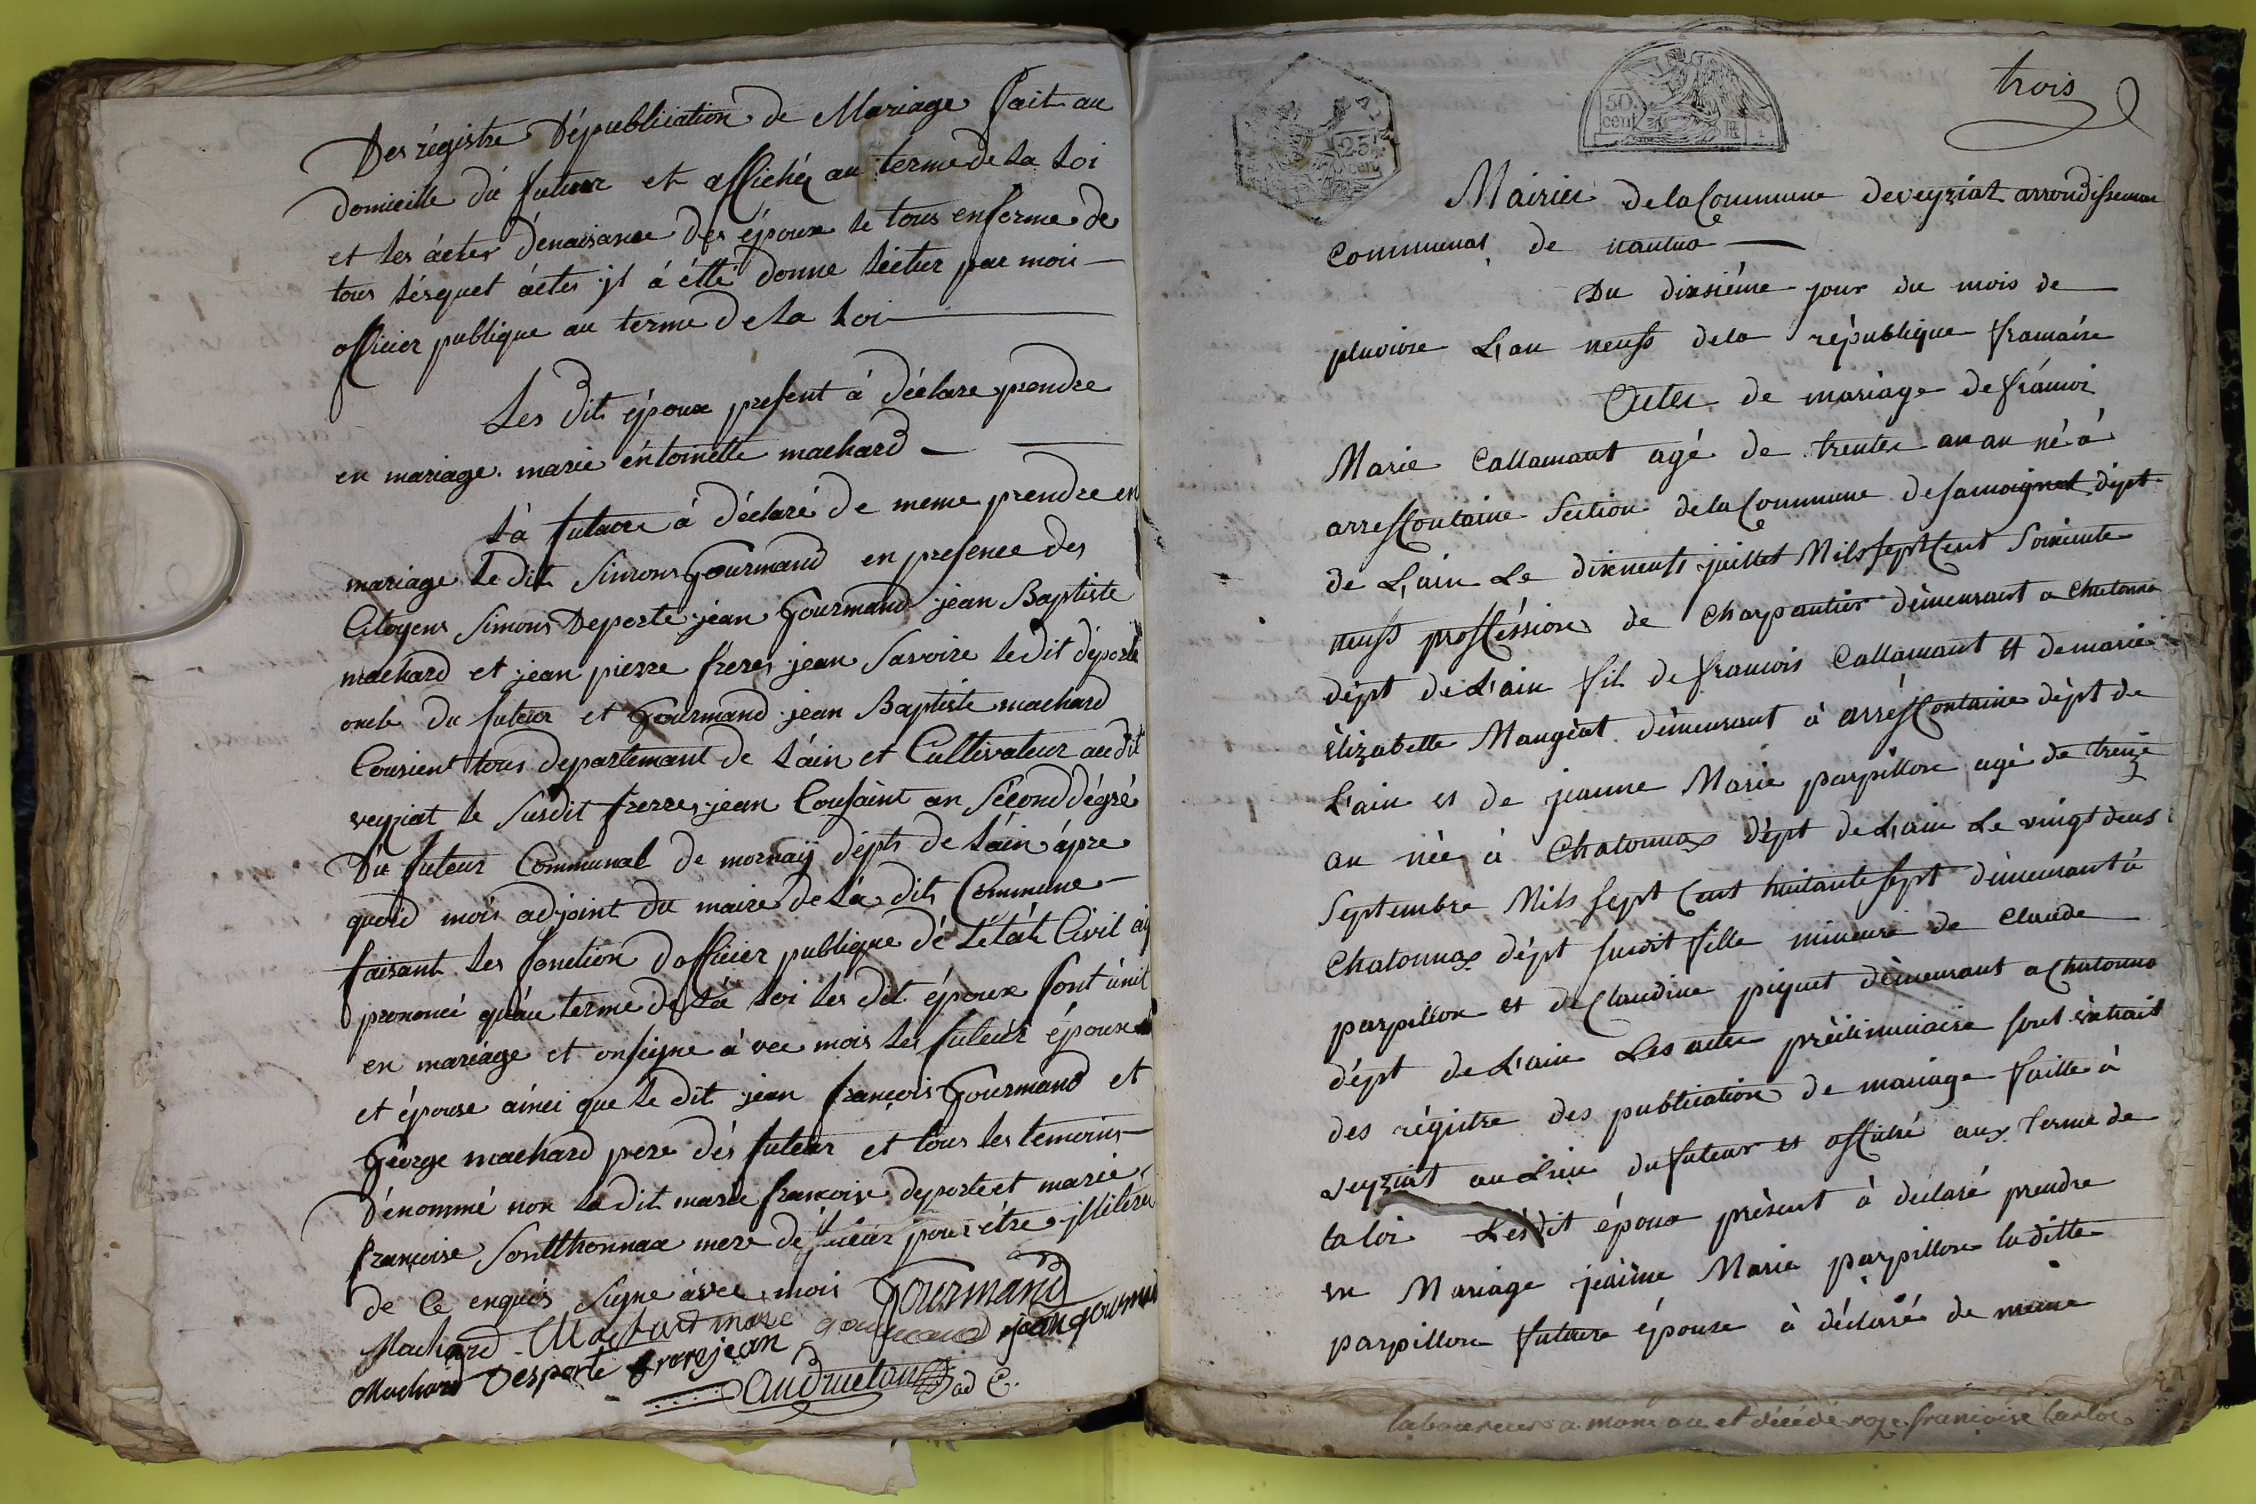 Des régistre Dépublication de Mariage fait au
domicille du futeur et affiché au terme de La Loi
et les áctes dénaisance des époux le tous en forme de
tous lésquet áctes jl á étté donne lectur par moi
officier publique au terme de La Loi
Les dit époux present á déclare prendre
en mariage marie éntoinette machard
Lá future á déclaré de meme prendre en
mariage le dit Simons Gourmand en presence des
Citoyens Simons Deporte jean Gourmand jean Baptiste
machard et jean pierre freres jean Savoire le dit déporte
oncle du futeur et Gourmand jean Baptiste machard
Cousient tous departemant de L'ain et Cultivateur au dit
veyziat le susdit frerre jean Cousaint an Sécond dégré
Du futeur Communal de mornaÿ dépt de Láin ápre
quoid mois adjoint du maire de Lá dite Commune
faisant les fonction dofficier publique dé L'état Civil aÿ
prononcé quáu terme de Lá Loi les dit époux sont únit
en mariage et onsigne á vec mois les futeur époux
et épouse áinci que le dit jean françois Gourmand et
George machard pere dés futeur et tous les temoins
dénommé non la dit marie françoise deporte et marie
françoise Sontthonnax mere dé futeur pour étre jlliteru
de Ce enquis Signe ávec mois Gourmand
Machard Machard maxe gourmand jean gourmand
Machard Desporte frerejean
Andruetan ad C.
trois
50 cent
25 cent
Mairiee de la Commune de veyziat arrondissemen
Communal de nantua
Du dixsiéme jour du mois de
pluviose L'an neuf de la république framaise
Actes de mariage de frámoi
Marie Callamant agé de trente un an né á
arresfontaine Section de la Commune de Samoignat dépt
de L'ain Le dixneuf juillet Mils sept Cent Soixente
neuf profféssion de Charpantier démeurant a Chatonna
dépt de L'ain fil de framois Callamant et de marie
Elizabette Mangéat démeurant á arrésfontaine dépt de
L'ain et de jeanne Marie parpillon agé de treize
an née á Chatonnax dépt de L'ain Le vingt deus
Septembre Mils Sept Cent huitante sept démeurant á
Chatonnax dépt susdit fille mineure de Claude
parpillon et de Claudine piquet démeurant a Chatonna
dépt de L'ain Les actes préliminiaire sont éxtrait
des régistre des publication de mariage faitte á
veyziat au Lieu du futeur et affiché aux terme de
la loi Lésdit époux présent á déclaré prendre
en Mariage jeanne Marie parpillon laditte
parpillon future épouse á déclaré de meme
laboureur a et décédé roze françoise